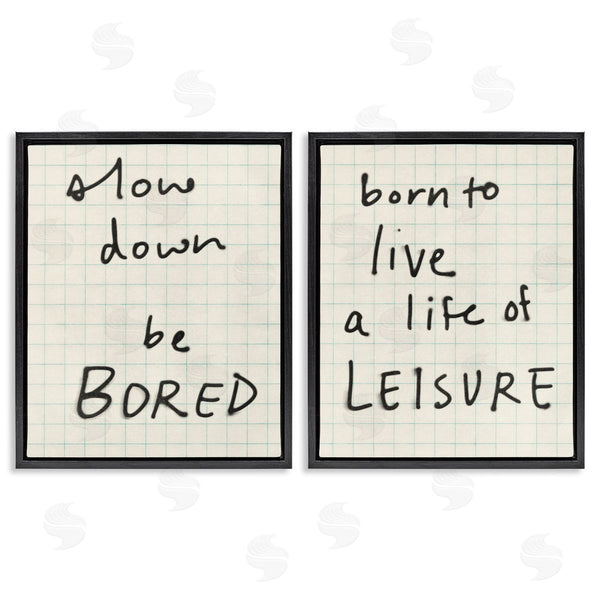 slow
down
be
BORED
born to
live
a life of
LEISURE